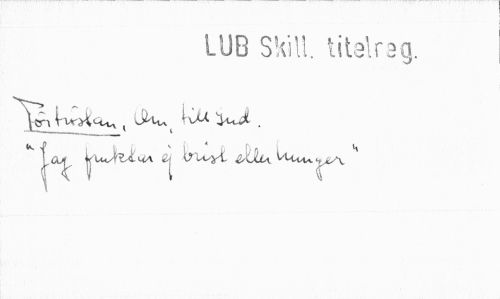 LUB Skill. titelreg.
Förtröstan, Om, till Gud.
"Jag fruktar ej brist eller hunger"